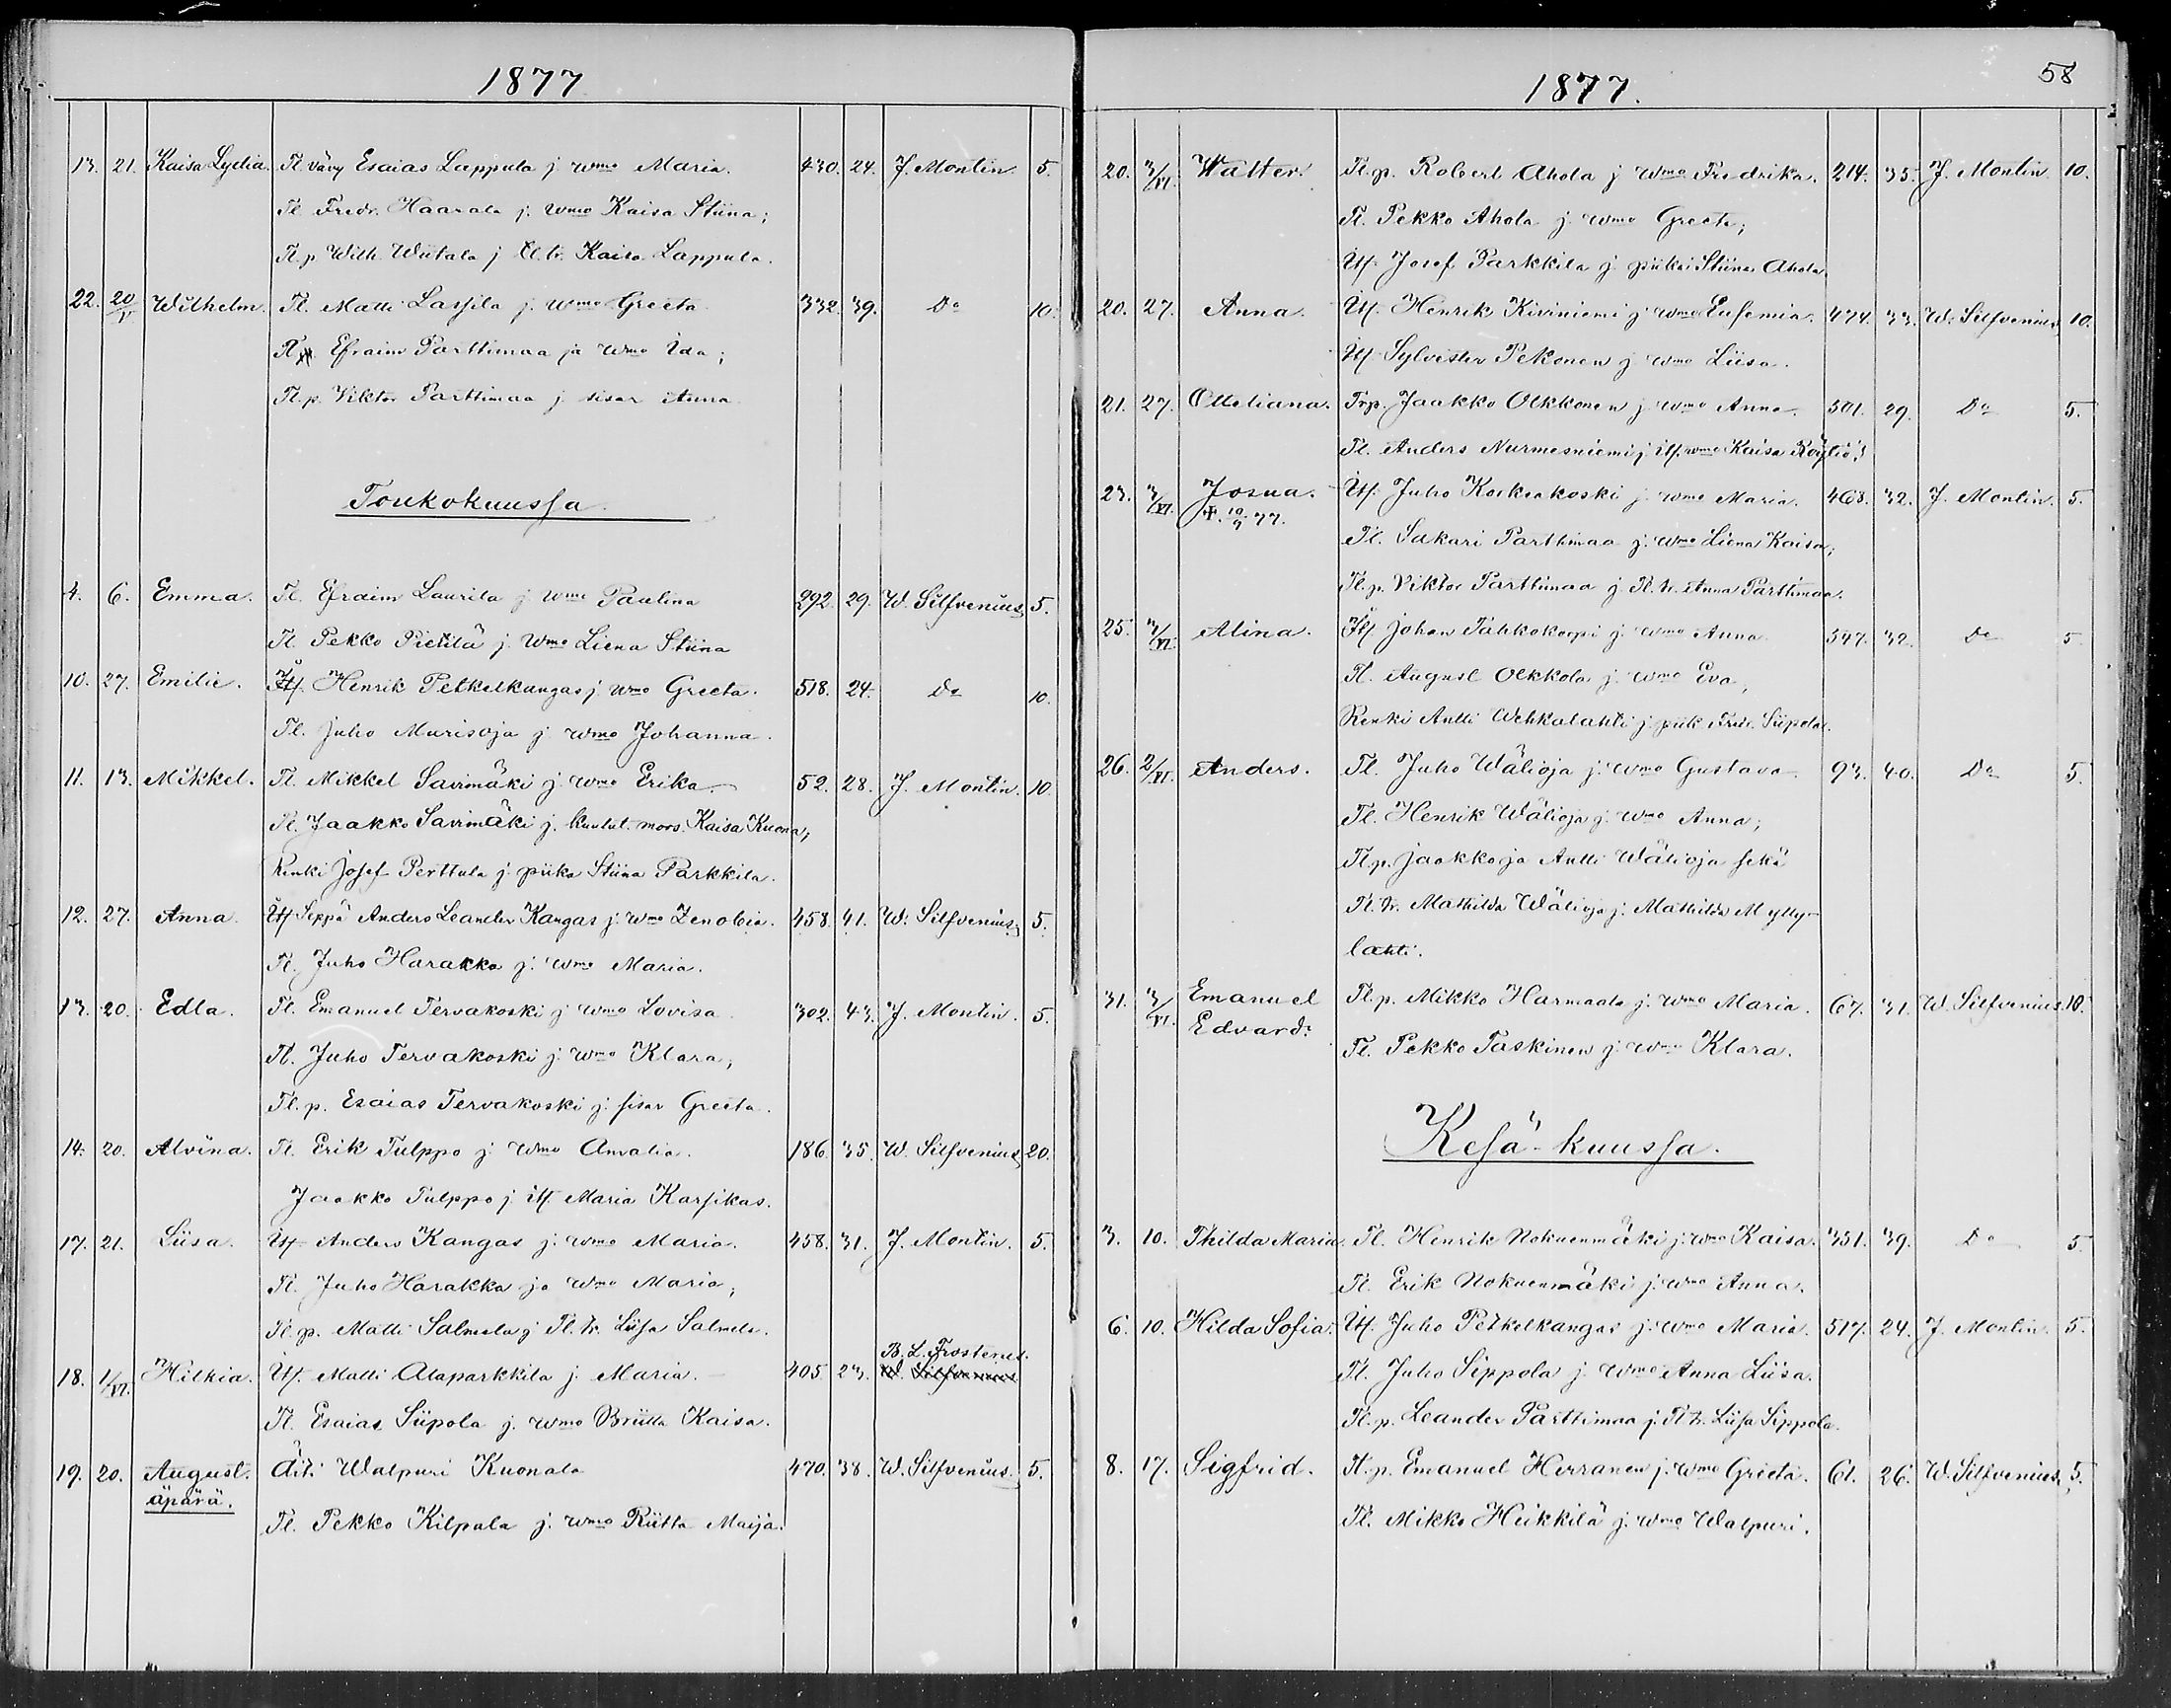 1877
13. 21. Kaisa Lydia. Tl vävy Esaias Lappula j. wmo Maria. 430. 24. J. Montin 5.
Tl Fredr. Haarala j. wmo Kaisa Stiina;
Tl. p Wilh. Wiitala j Tl. tr. Kaisa Lappula.
22. 20/V Wilhelm. Tl. Matti Lassila j. wmo Greeta 332. 39. Do 10.
Tl. Efraim Parttimaa ja wmo Ida;
Tl. p. Viktor Parttimaa j sisar Anna
Toukokuussa.
4. 6. Emma. Tl. Efraim Laurila j wmo Paulina 292. 29. W. Silfvenius 5.
Tl. Pekko Pietilä j. wmo Liena Stiina
10. 27. Emilie. Itf. Henrik Petkelkangas j wmo Greeta. 518. 24. Do 10.
Tl. Juho Murisoja j wmo Johanna.
11. 13. Mikkel. Tl. Mikkel Savimäki j. wmo Erika 52. 28. J. Montin. 10.
Tl. Jaakko Savimäki j. kuulut. mors. Kaisa Kuona;
Renki Josef Perttula j piika Stiina Parkkila.
12. 27. Anna. Itf Seppä Anders Leander Kangas j. wmo Zenobia. 458. 41. W. Silfvenius 5.
Tl. Juho Harakka j. wmo Maria.
13. 20. Edla. Tl. Emanuel Tervakoski j wmo Lovisa. 302. 43. J. Montin. 5.
Tl. Juho Tervakoski j. wmo Klara;
Tl. p. Esaias Tervakoski j. sisar Greeta.
14. 20. Alvina. Tl. Erik Tulppo j. wmo Amalia. 186. 35. W. Silfvenius 20.
Jaakko Tulppo j. itf. Maria Karsikas.
17. 21. Liisa. Itf. Anders Kangas j. wmo Maria. 458. 31. J. Montin. 5.
Tl. Juho Harakka ja wmo Maria;
Tl. p. Matti Salmela j Tl. tr. Liisa Salmela.
B. L. Frosterus.
18. 1/VI. Hilkia. Itf. Matti Alaparkkila j. Maria. 405. 23. W. Silfvenius
Tl. Esaias Siipola j. wmo Briitta Kaisa.
19. 20. August. Äiti Walpuri Kuonala 470. 38. W. Silfvenius. 5.
äpärä.
Tl. Pekko Kilpala j. wmo Riitta Maija.
1877.
58
20. 3/VI. Walter. Tl. p. Robert Ahola j wmo Fredrika. 214. 35. J. Montin. 10.
Tl. Pekko Ahola j. wmo Greeta;
Itf. Josef Parkkila j piika Stiina Ahola.
20. 27. Anna. Itf. Henrik Kiviniemi j wmo Eufemia. 474. 33. W. Silfvenius 10.
Itf. Sylvester Pekonen j wmo Liisa.
21. 27. Otteliana. Trp. Jaakko Olkkonen j wmo Anna. 301. 29. Do 5.
Tl. Anders Nurmesniemi j. itf. wmo Kaisa Köyliö.
23. 3/VI. Josua. Itf. Juho Koskenkoski j. wmo Maria. 468. 32. J. Montin. 5.
†. 10/9 77.
Tl. Sakari Parttimaa j. wmo Liena Kaisa;
Tl. p. Viktor Parttimaa j Tl. tr. Anna Parttimaa.
25. 3/VI. Alina. Itf Johan Tahkokorpi j wmo Anna 347. 32. Do 5.
Tl. August Olkkola j. wmo Eva,
Renki Antti Wehkalahti j piik Fredr. Siipola.
26. 2/VI. Anders. Tl. Juho Wälioja j. wmo Gustava 93. 40. Do 5.
Tl. Henrik Wälioja j. wmo Anna;
Tl. p. Jaakko ja Antti Wälioja sekä
Tl. tr. Mathilda Wälioja j. Mathilda Mylly-
lahti.
31. 3/VI. Emanuel Tl. p. Mikko Harmaala j. wmo Maria. 67. 31. W. Silfvenius. 10.
Edvard.
Tl. Pekko Taskinen j. wmo Klara.
Kesä-kuussa.
3. 10. Thilda Maria. Tl. Henrik Nokuenmäki j. wmo Kaisa. 351. 39. Do 5.
Tl. Erik Nokuenmäki j. wmo Anna.
6. 10. Hilda Sofia. Itf. Juho Petkelkangas j. wmo Maria. 517. 24. J. Montin. 5.
Tl. Juho Sippola j. wmo Anna Liisa.
Tl. p. Leander Parttimaa j. Tl tr. Liisa Sippola.
8. 17. Sigfrid. Tl. p. Emanuel Herranen j. wmo Greeta. 61. 26. W. Silfvenius 5.
Tl. Mikko Heikkilä j. wmo Walpuri.